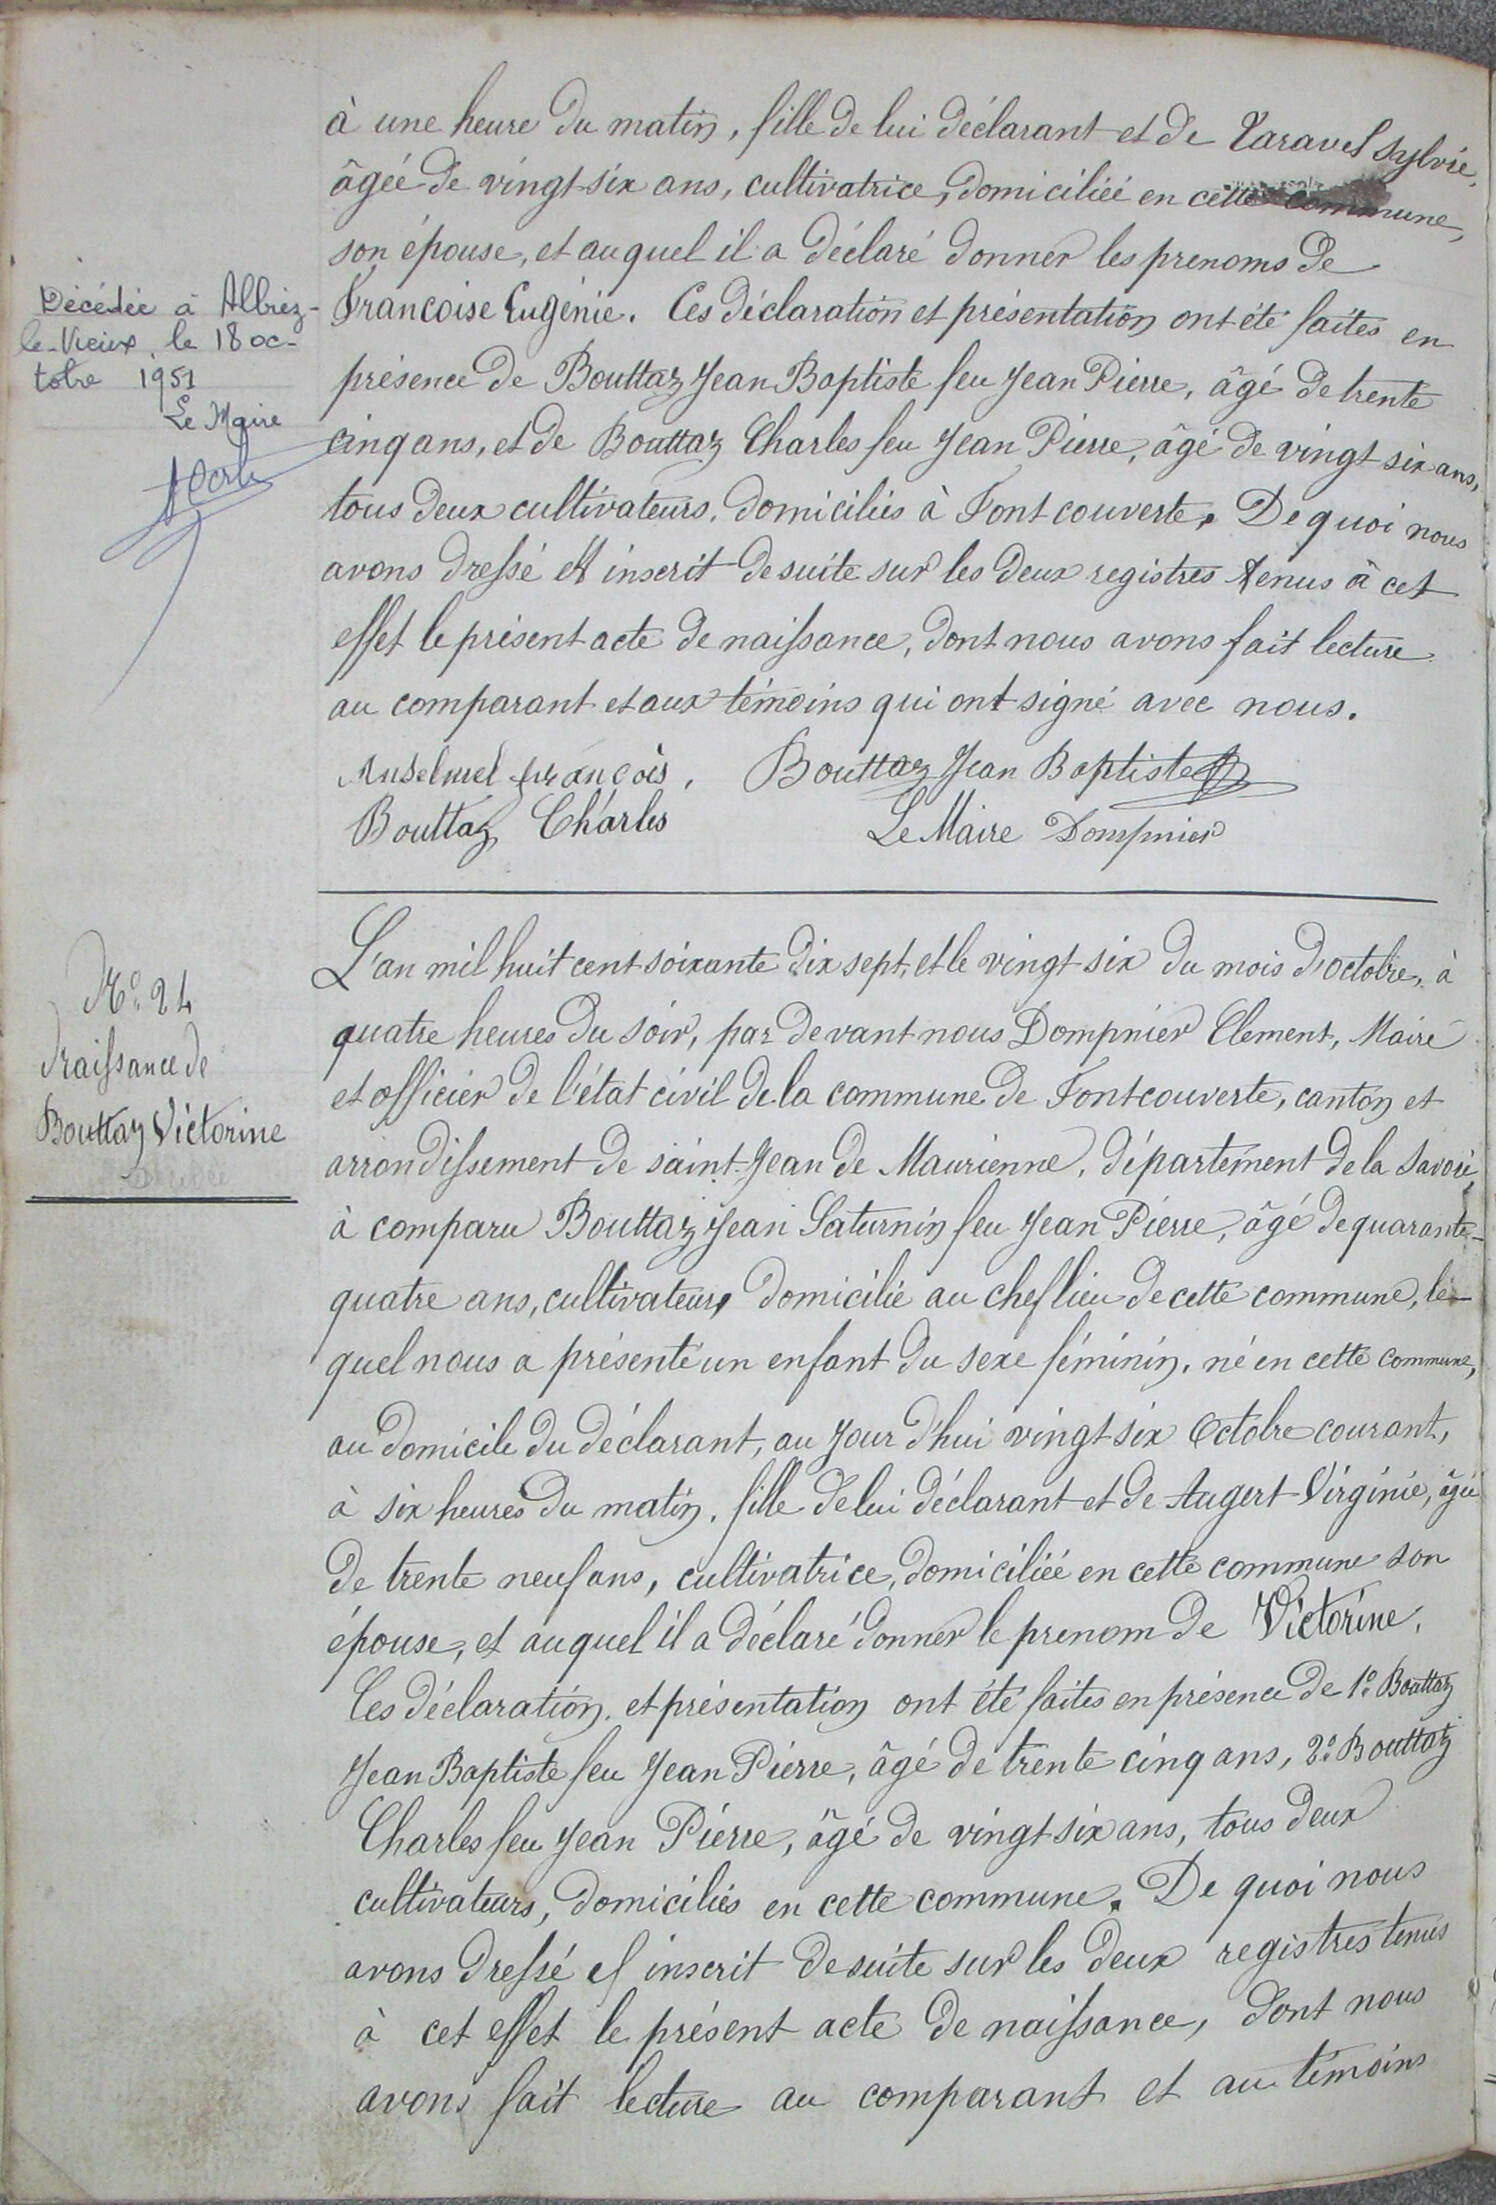 à une heure du matin, fille de lui déclarant et de Taravel Sylvie,
âgée de vingt six ans, cultivatrice, domiciliée en cette commune,
son épouse, et auquel il a déclaré donner les prenoms de
Francoise Eugénie. Ces déclaration et présentation ont été faites en
présence de Bouttaz Jean Baptiste feu Jean Pierre, âgé de trente
cinq ans, et de Bouttaz Charles feu Jean Pierre, âgé de vingt six ans,
tous deux cultivateurs, domiciliés à Fontcouverte, De quoi nous
avons dressé et inscrit de suite sur les deux registres tenus à cet
effet le présent acte de naissance, dont nous avons fait lecture
au comparant et aux témoins qui ont signé avec nous.
Anselmel françois, Bouttaz Jean Baptiste
Bouttaz Charles Le Maire Dompnier
Décédée à Albiez-
le-Vieux, le 18 oc-
tobre 1951
Le Maire
N° 24
Naissance de
Bouttaz Victorine
L'an mil huit cent soixante dix sept, et le vingt six du mois d'octobre, à
quatre heures du soir, par devant nous Dompnier Clement, Maire
et officier de l'état civil de la commune de Fontcouverte, canton et
arrondissement de saint-Jean de Maurienne, département de la Savoie,
à comparu Bouttaz Jean Saturnin feu Jean Pierre, âgé de quarante-
quatre ans, cultivateur, domicilié au chef lieu de cette commune, le-
quel nous a présenté un enfant du sexe féminin, né en cette commune,
au domicile du déclarant, au jour d'hui vingt six Octobre courant,
à six heures du matin, fille de lui déclarant et de Augert Virginie, âgée
de trente neuf ans, cultivatrice, domiciliée en cette commune son
épouse, et auquel il a déclaré donner le prenom de Victorine.
Ces déclaration et présentation ont été faites en présence de 1° Bouttaz
Jean Baptiste feu Jean Pierre, âgé de trente cinq ans, 2° Bouttaz
Charles feu Jean Pierre, âgé de vingt six ans, tous deux
cultivateurs, domiciliés en cette commune. De quoi nous
avons dressé et inscrit de suite sur les deux registres tenus
à cet effet le présent acte de naissance, dont nous
avons fait lecture au comparant et au témoins